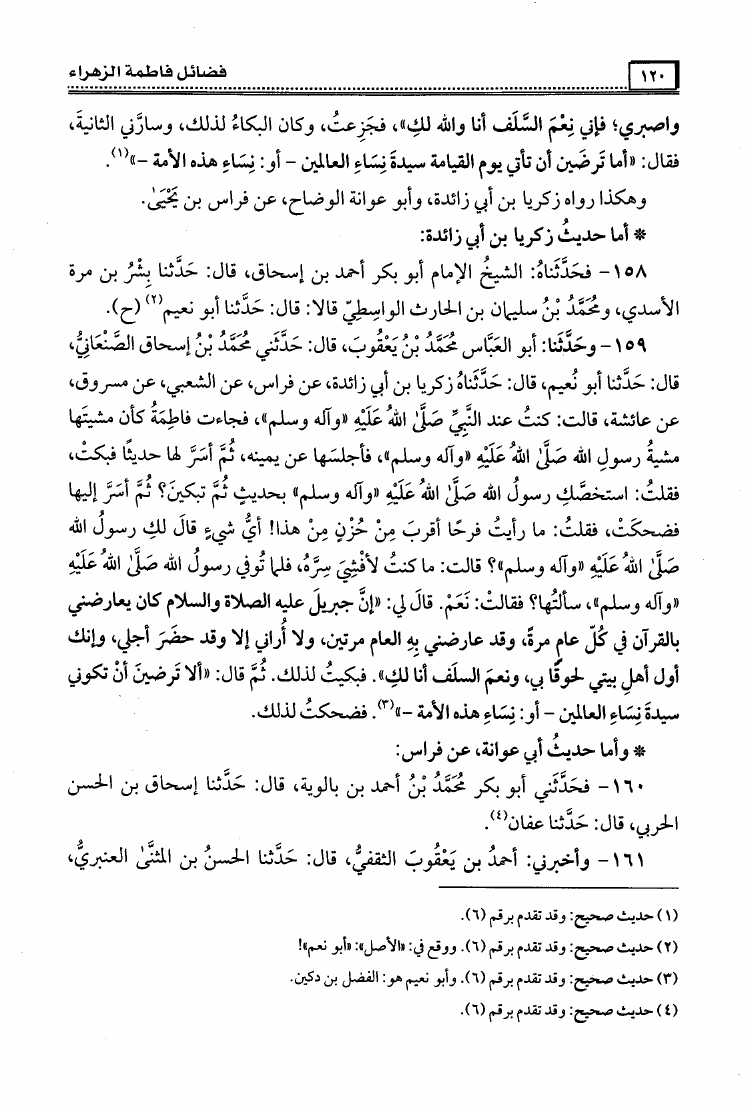 ١٢٠ فضائل فاطمة الزهراء
واصبري؛ فإني نِعْمَ السَّلَف أنا والله لكِ»، فجَزِعتُ، وكان البكاءُ لذلك، وسارَّني الثانيةَ،
فقال: «أما تَرضَين أن تأتي يوم القيامة سيدةَ نِسَاءِ العالمين – أو: نِسَاءِ هذه الأمة –»(١).
وهكذا رواه زكريا بن أبي زائدة، وأبو عوانة الوضاح، عن فراس بن يَحْيَىٰ.
* أما حديثُ زكريا بن أبي زائدة:
١٥٨- فحَدَّثَناهُ: الشيخُ الإمام أبو بكر أحمد بن إسحاق، قال: حَدَّثنا بِشْرُ بن مرة
الأسدي، ومُحَمَّدُ بْنُ سليمان بن الحارث الواسِطِيّ قالا: قال: حَدَّثنا أبو نعيم(٢) (ح).
١٥٩- وحَدَّثَنا: أبو العَبَّاس مُحَمَّدُ بْنُ يَعْقُوبَ، قال: حَدَّثَني مُحَمَّدُ بْنُ إسحاق الصَّنْعَانِيُّ،
قال: حَدَّثنا أبو نُعيم، قال: حَدَّثَناهُ زكريا بن أبي زائدة، عن فراس، عن الشعبي، عن مسروق،
عن عائشة، قالت: كنتُ عند النَّبِيِّ صَلَّىٰ اللهُ عَلَيْهِ «وآله وسلم»، فجاءت فاطِمَةُ كأن مشيتَها
مشيةُ رسولِ الله صَلَّىٰ اللهُ عَلَيْهِ «وآله وسلم»، فأجلسَها عن يمينه، ثُمَّ أسَرَّ لها حديثًا فبكتْ،
فقلتُ: استخصَّكِ رسولُ الله صَلَّىٰ اللهُ عَلَيْهِ «وآله وسلم» بحديثٍ ثُمَّ تبكينَ؟ ثُمَّ أسَرَّ إليها
فضحكَتْ، فقلتُ: ما رأيتُ فرحًا أقربَ مِنْ حُزْنٍ مِنْ هذا! أيُّ شيءٍ قالَ لكِ رسولُ الله
صَلَّىٰ اللهُ عَلَيْهِ «وآله وسلم»؟ قالت: ما كنتُ لأفْشِيَ سِرَّهُ، فلما تُوفي رسولُ الله صَلَّىٰ اللهُ عَلَيْهِ
«وآله وسلم»، سألتُها؟ فقالتْ: نَعَمْ. قالَ لي: «إنَّ جبريلَ عليه الصلاة والسلام كان يعارضني
بالقرآن في كُلِّ عامٍ مرةً، وقد عارضني بِهِ العام مرتين، ولا أُراني إلا وقد حضَرَ أجلي، وإنك
أول أهلِ بيتي لحوقًا بي، ونعمَ السلَف أنا لكِ». فبكيتُ لذلك. ثُمَّ قال: «ألا تَرضينَ أنْ تكوني
سيدةَ نِسَاءِ العالمين – أو: نِسَاءِ هذه الأمة –»(٣). فضحكتُ لذلك.
* وأما حديثُ أبي عوانة، عن فراس:
١٦٠- فحَدَّثَني أبو بكر مُحَمَّدُ بْنُ أحمد بن بالوية، قال: حَدَّثنا إسحاق بن الحسن
الحربي، قال: حَدَّثنا عفان(٤).
١٦١- وأخبرني: أحمدُ بن يَعْقُوبَ الثقفيُّ، قال: حَدَّثنا الحسنُ بن المثنَّىٰ العنبريُّ،
(١) حديث صحيح: وقد تقدم برقم (٦).
(٢) حديث صحيح: وقد تقدم برقم (٦). ووقع في: «الأصل»: «أبو نعم»!
(٣) حديث صحيح: وقد تقدم برقم (٦). وأبو نعيم هو: الفضل بن دكين.
(٤) حديث صحيح: وقد تقدم برقم (٦).